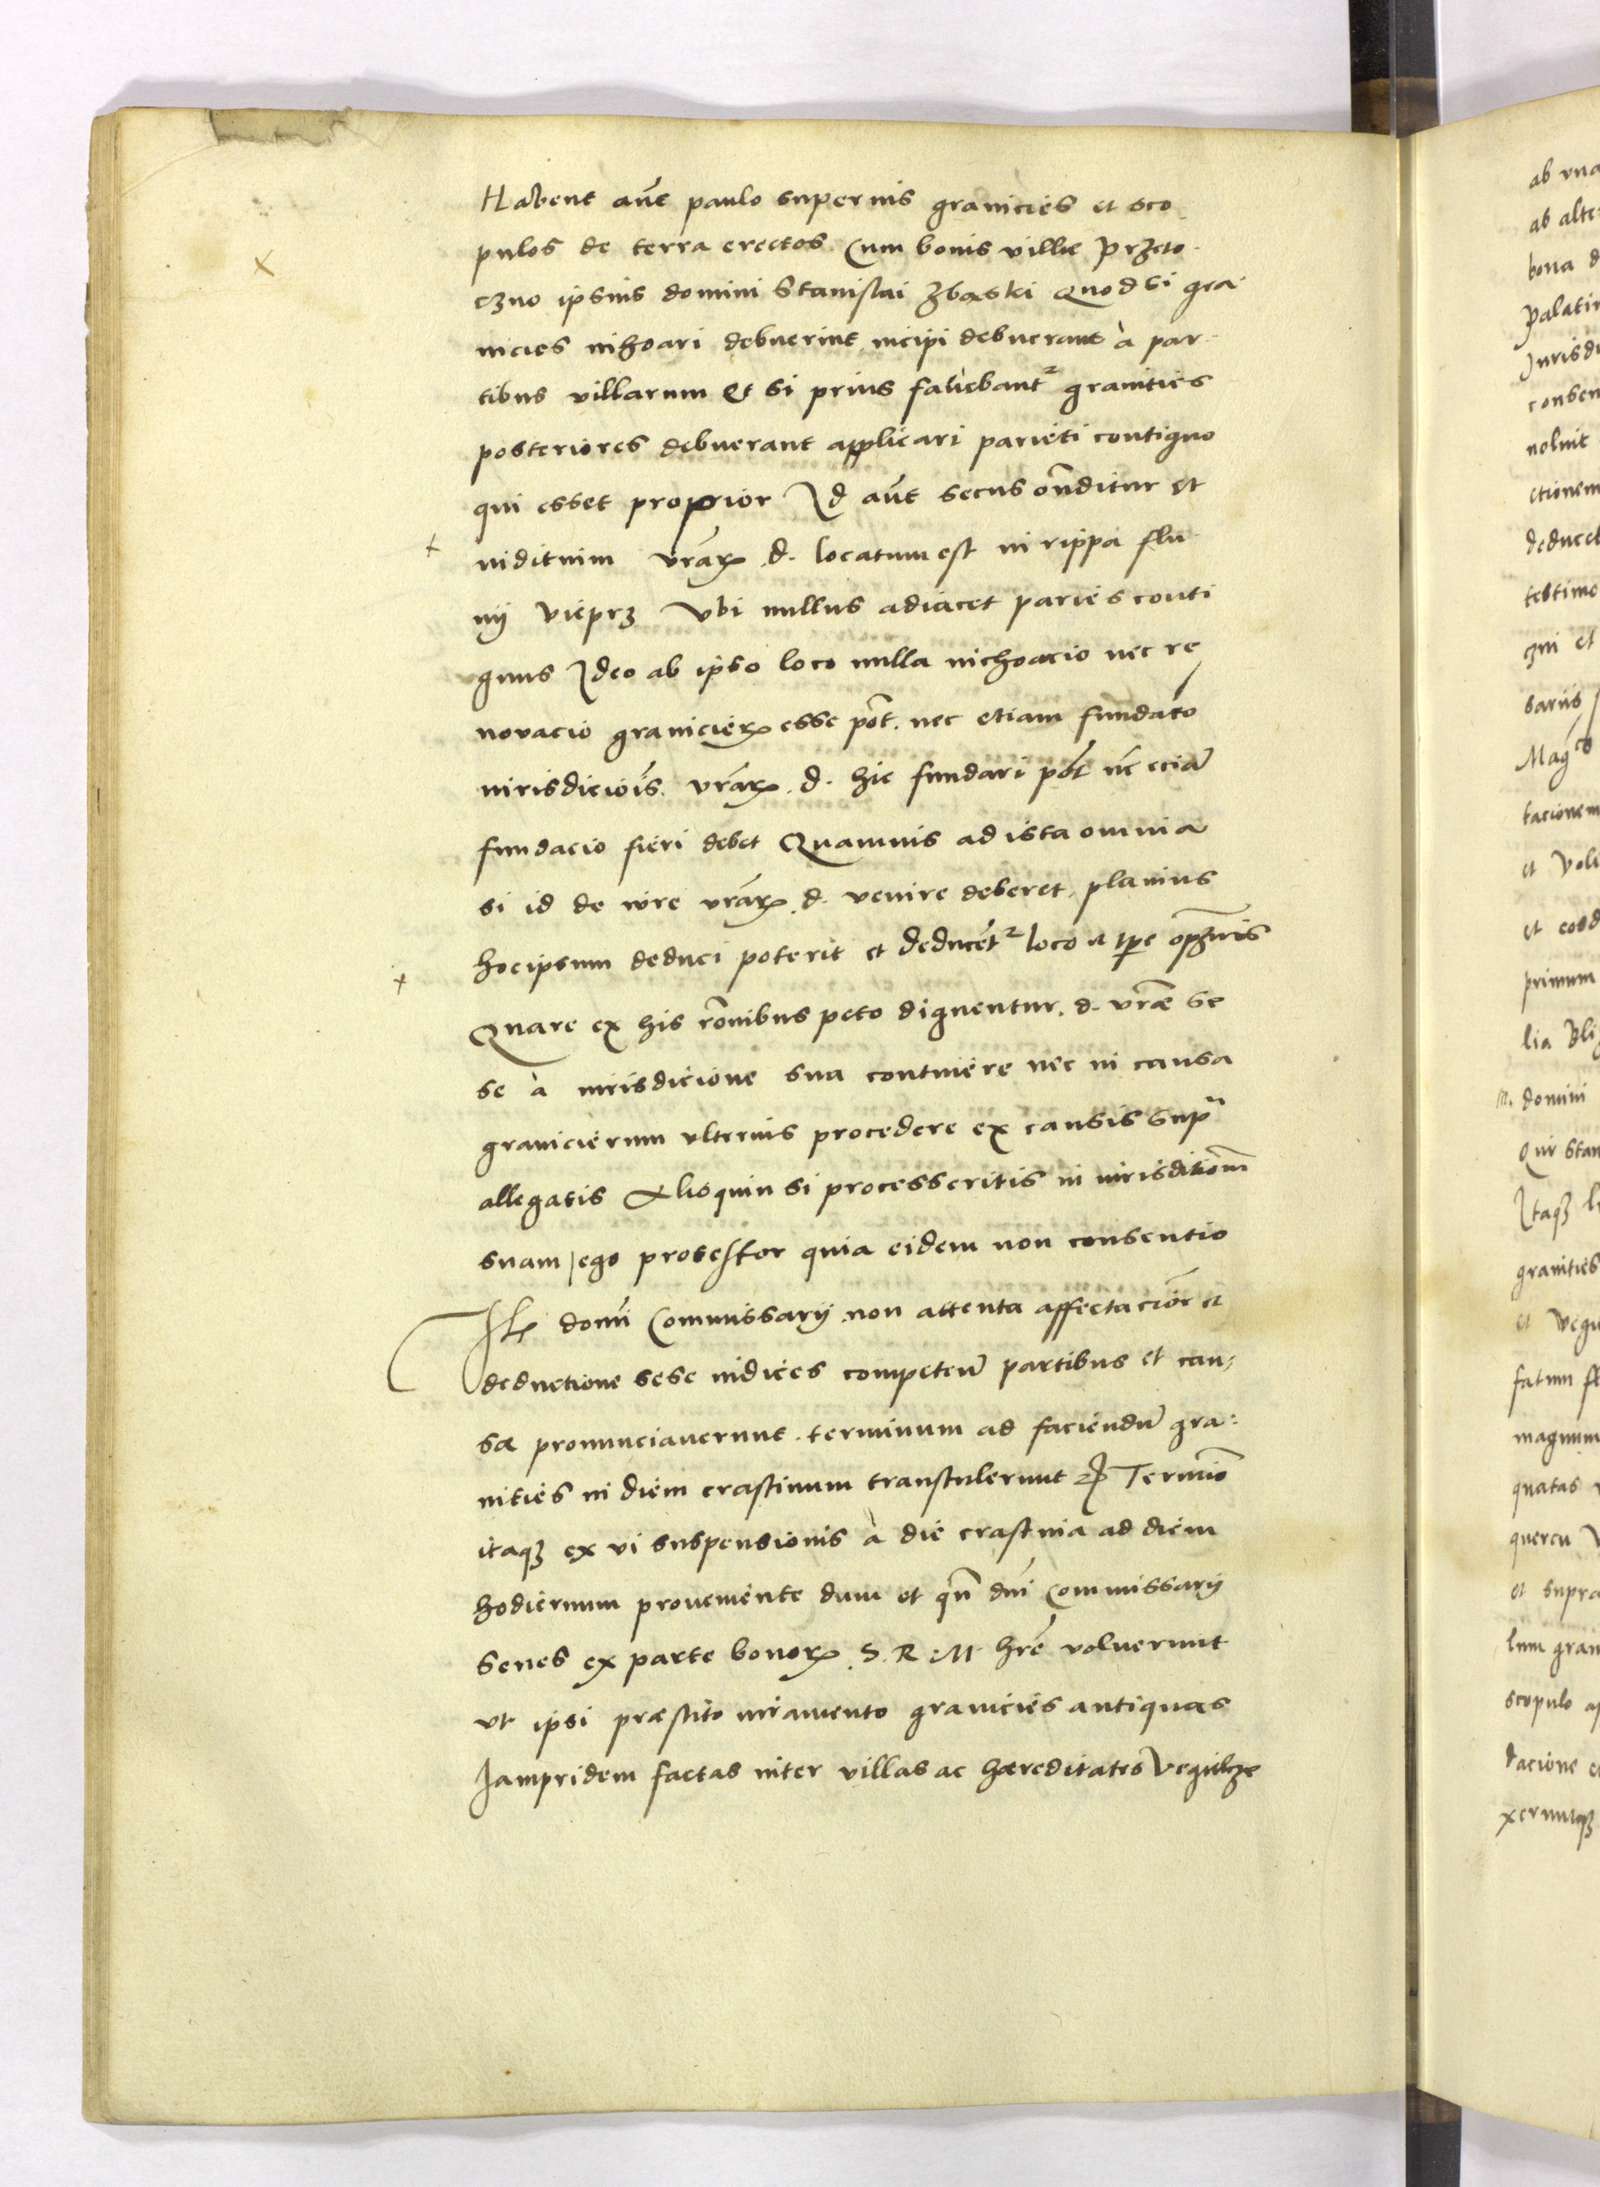 Habent aūt paulo superius granicies et sco
pulos de terra erectos Cum bonis villæ Przeto
czno ipsius domini Stanislai Zbąski Quod si gra
nicies inchoari debuerint incipi debuerant à par
tibus villarum Et si prius faciebant² granities
posteriores debuerant applicari parieti contiguo
qui esset proprior Id aūt secus on̄ditur Et
iuditium vrāꝝ d. locatum est in rippa flu
uij vieprz Vbi nullus adiacet paries conti
guus Ideo ab ipso loco nulla inchoacio nec re
novacio granicieꝝ esse pōt. nec etiam fundato
iurisdiciōis vrāꝝ d. hic fundari pōt nc̄ eciā
fundacio fieri debet Quamuis ad ista omnia
si id de iure vrāꝝ d. venire deberet planius
hoc ipsum deduci poterit et deducēt² loco et tpe
Quare ex his rōnibus peto dignentur. d. vrǣ se
se à iurisdicione sua continere nec in causa
granicierum vlterius procedere ex causis supͣ
allegatis Alioquin si processeritis in iurisditionē
suam ego protestor quia eidem non consentio
domī Commissarij non attenta affectaciōe et
deductione sese iudices competeñ partibus et cau
sæ pronunciaverunt terminum ad faciendū gra
nities in diem crastinum transtulerunt Termīo
itaqꝫ ex vi suspensionis à die crastina ad diem
hodiernum proueniente dum et qn̄ dnī Commissarij
senes ex parte bonoꝝ S. R. M. hrē voluerunt
vt ipsi præstito iuramento granicies antiquas
Iampridem factas inter villas ac hæreditates

ab vna
ab alte
bona d
palati
Iurisdi
consen
noluit
ctionem
deducet
testimo
czni et
sarius
Magco
tacionem
et volu
et eosd
primum
lia
m. domini
Qui stan
Itaqꝫ
granities
et
fatum
magnum
quatas
quercu
et supra
lum gran
scopulo
dacione
xeruntqꝫ